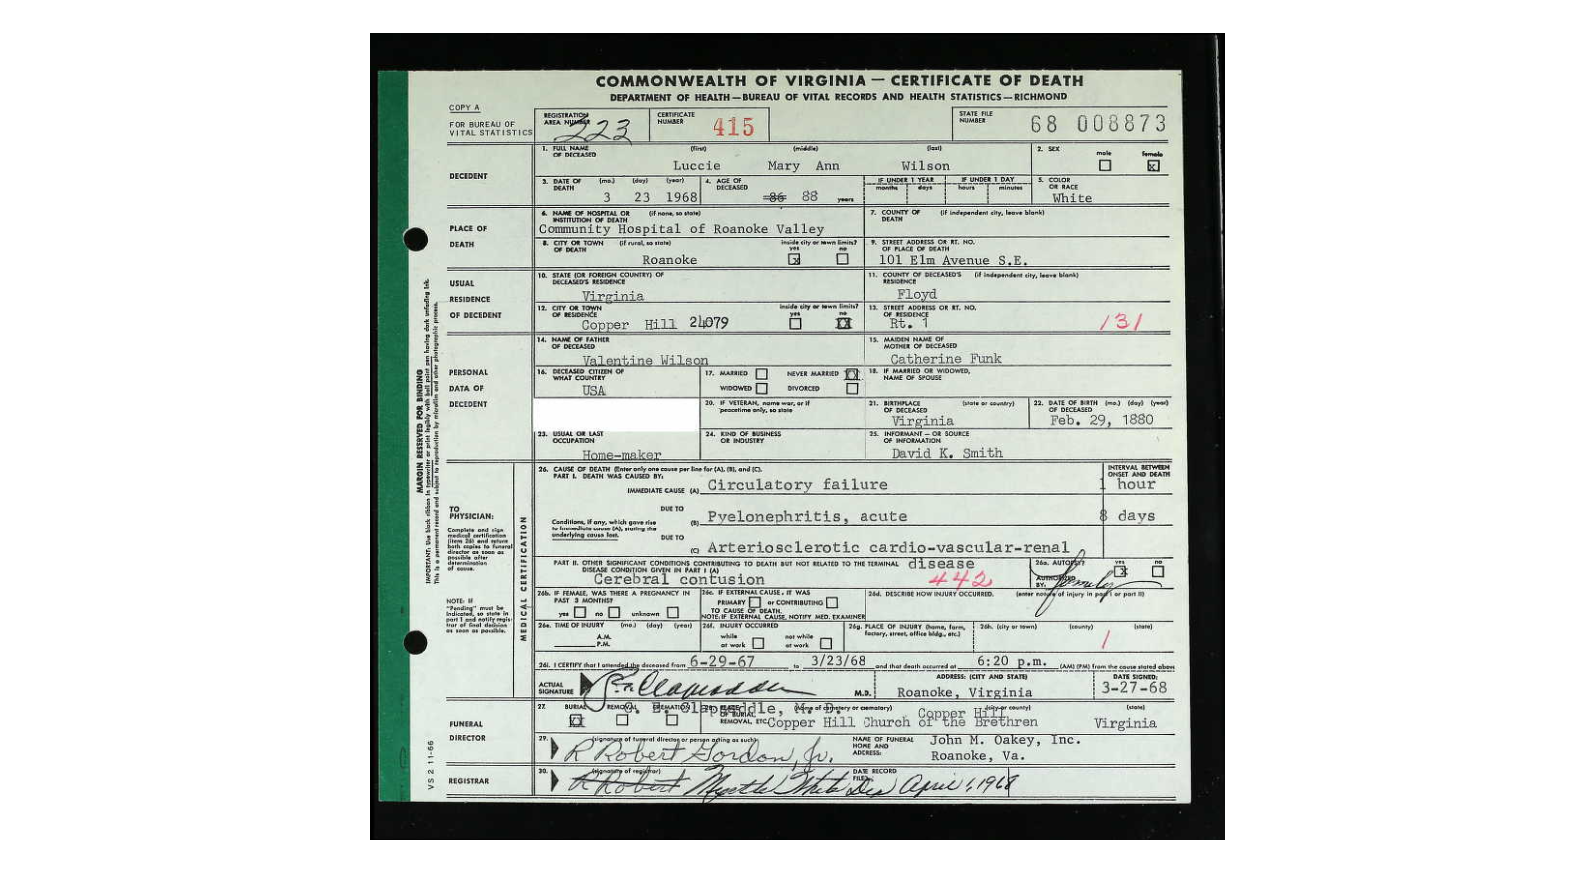 COMMONWEALTH OF VIRGINIA — CERTIFICATE OF DEATH
DEPARTMENT OF HEALTH—BUREAU OF VITAL RECORDS AND HEALTH STATISTICS—RICHMOND
COPY A
FOR BUREAU OF VITAL STATISTICS
REGISTRATION AREA NUMBER 223
CERTIFICATE NUMBER 415
STATE FILE NUMBER 68 008873
DECEDENT
1. FULL NAME OF DECEASED (first) (middle) (last)
Luccie Mary Ann Wilson
2. SEX male female x
3. DATE OF DEATH (mo.) (day) (year)
3 23 1968
4. AGE OF DECEASED
86 88 years
IF UNDER 1 YEAR months days
IF UNDER 1 DAY hours minutes
5. COLOR OR RACE
White
PLACE OF DEATH
6. NAME OF HOSPITAL OR INSTITUTION OF DEATH (if none, so state)
Community Hospital of Roanoke Valley
7. COUNTY OF DEATH (if independent city, leave blank)
8. CITY OR TOWN OF DEATH (if rural, so state)
Roanoke
inside city or town limits? yes x no
9. STREET ADDRESS OR RT. NO. OF PLACE OF DEATH
101 Elm Avenue S.E.
USUAL RESIDENCE OF DECEDENT
10. STATE (OR FOREIGN COUNTRY) OF DECEASED'S RESIDENCE
Virginia
11. COUNTY OF DECEASED'S RESIDENCE (if independent city, leave blank)
Floyd
12. CITY OR TOWN OF RESIDENCE
Copper Hill 24079
inside city or town limits? yes no XX
13. STREET ADDRESS OR RT. NO. OF RESIDENCE
Rt. 1
131
PERSONAL DATA OF DECEDENT
14. NAME OF FATHER OF DECEASED
Valentine Wilson
15. MAIDEN NAME OF MOTHER OF DECEASED
Catherine Funk
16. DECEASED CITIZEN OF WHAT COUNTRY
USA
17. MARRIED NEVER MARRIED
WIDOWED DIVORCED
18. IF MARRIED OR WIDOWED, NAME OF SPOUSE
20. IF VETERAN, name war, or if peacetime only, so state
21. BIRTHPLACE OF DECEASED (state or country)
Virginia
22. DATE OF BIRTH OF DECEASED (mo.) (day) (year)
Feb. 29, 1880
23. USUAL OR LAST OCCUPATION
Home-maker
24. KIND OF BUSINESS OR INDUSTRY
25. INFORMANT — OR SOURCE OF INFORMATION
David K. Smith
MARGIN RESERVED FOR BINDING
TO PHYSICIAN:
Complete and sign medical certification (item 26) and return both copies to funeral director as soon as possible after determination of cause.
NOTE: If "Pending" must be indicated, so state in part I and notify registrar of final decision as soon as possible.
MEDICAL CERTIFICATION
26. CAUSE OF DEATH (Enter only one cause per line for (A), (B), and (C).
PART I. DEATH WAS CAUSED BY:
INTERVAL BETWEEN ONSET AND DEATH
IMMEDIATE CAUSE (A) Circulatory failure 1 hour
DUE TO
Conditions, if any, which gave rise to immediate cause (A), stating the underlying cause last.
(B) Pyelonephritis, acute 8 days
DUE TO
(C) Arteriosclerotic cardio-vascular-renal
disease
PART II. OTHER SIGNIFICANT CONDITIONS CONTRIBUTING TO DEATH BUT NOT RELATED TO THE TERMINAL DISEASE CONDITION GIVEN IN PART I (A)
Cerebral contusion
442
26a. AUTOPSY? yes x no
AUTHORIZED BY: family
26b. IF FEMALE, WAS THERE A PREGNANCY IN PAST 3 MONTHS?
yes no unknown
26c. IF EXTERNAL CAUSE, IT WAS
PRIMARY or CONTRIBUTING
TO CAUSE OF DEATH.
NOTE: IF EXTERNAL CAUSE, NOTIFY MED. EXAMINER
26d. DESCRIBE HOW INJURY OCCURRED. (enter nature of injury in part I or part II)
26e. TIME OF INJURY (mo.) (day) (year)
A.M.
P.M.
26f. INJURY OCCURRED
while at work not while at work
26g. PLACE OF INJURY (home, farm, factory, street, office bldg., etc.)
26h. (city or town) (county) (state)
26i. I CERTIFY that I attended the deceased from 6-29-67 to 3/23/68 and that death occurred at 6:20 p.m. (AM) (PM) from the cause stated above
ACTUAL SIGNATURE M.D.
ADDRESS: (CITY AND STATE)
Roanoke, Virginia
DATE SIGNED:
3-27-68
FUNERAL DIRECTOR
27. BURIAL XX REMOVAL CREMATION
28. PLACE OF BURIAL, REMOVAL, ETC. (name of cemetery or crematory) (city or county) (state)
Copper Hill Church of the Brethren
Copper Hill
Virginia
29. (signature of funeral director or person acting as such)
R Robert Gordon, Jr.
NAME OF FUNERAL HOME AND ADDRESS:
John M. Oakey, Inc.
Roanoke, Va.
REGISTRAR
30. (signature of registrar)
R Robert
DATE RECORD FILED:
April 1, 1968
VS 2 11-66